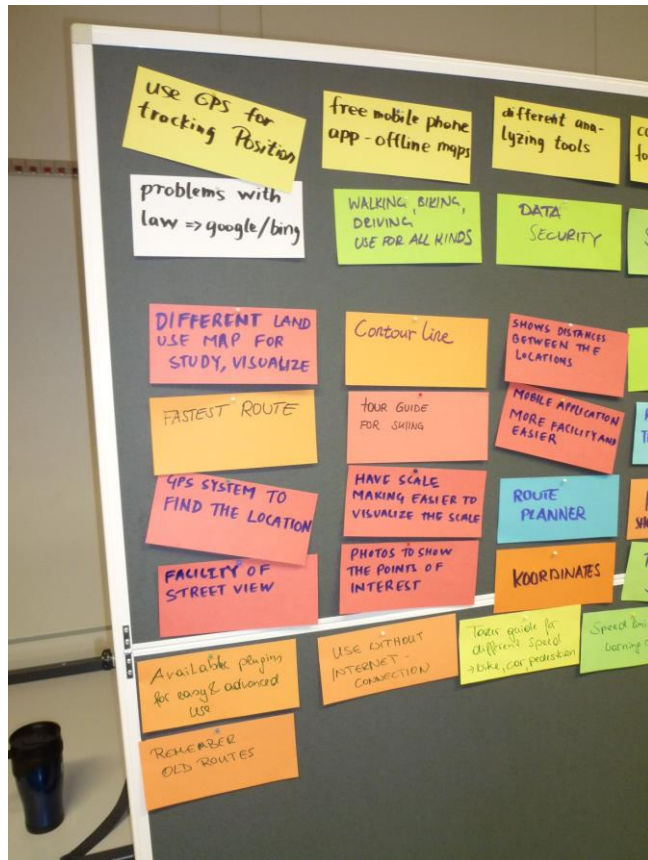 use GPS for
tracking Position
free mobile phone
app - offline maps
different ana-
lyzing tools
problems with
law => google/bing
WALKING, BIKING,
DRIVING,
USE FOR ALL KINDS
DATA
SECURITY
DIFFERENT LAND
USE MAP FOR
STUDY, VISUALIZE
Contour Line
SHOWS DISTANCES
BETWEEN THE
LOCATIONS
FASTEST ROUTE
TOUR GUIDE
FOR SKIING
MOBILE APPLICATION
MORE FACILITY AND
EASIER
GPS SYSTEM TO
FIND THE LOCATION
HAVE SCALE
MAKING EASIER TO
VISUALIZE THE SCALE
ROUTE
PLANNER
FACILITY OF
STREET VIEW
PHOTOS TO SHOW
THE POINTS OF
INTEREST
KOORDINATES
Available plugins
for easy & advanced
use
USE WITHOUT
INTERNET-
CONNECTION
guide for
different speed
→ bike, car, pedestrian
Speed
REMEMBER
OLD ROUTES